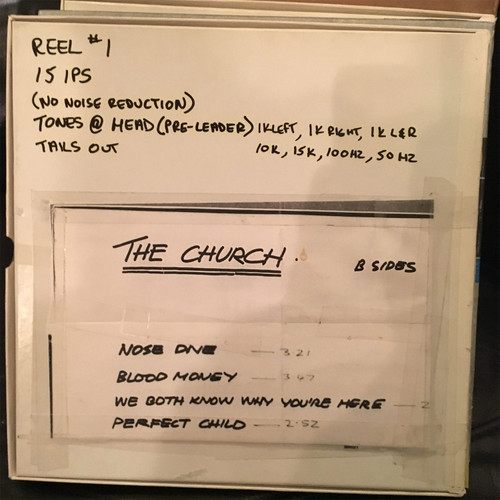 REEL #1
15 IPS
(NO NOISE REDUCTION)
TONES @ HEAD (PRE-LEADER) 1K LEFT, 1K RIGHT, 1K L&R
TAILS OUT 10K, 15K, 100HZ, 50HZ
THE CHURCH. B SIDES
NOSE DIVE — 3 21
BLOOD MONEY — 3 47
WE BOTH KNOW WHY YOU'RE HERE — 2
PERFECT CHILD — 2.52